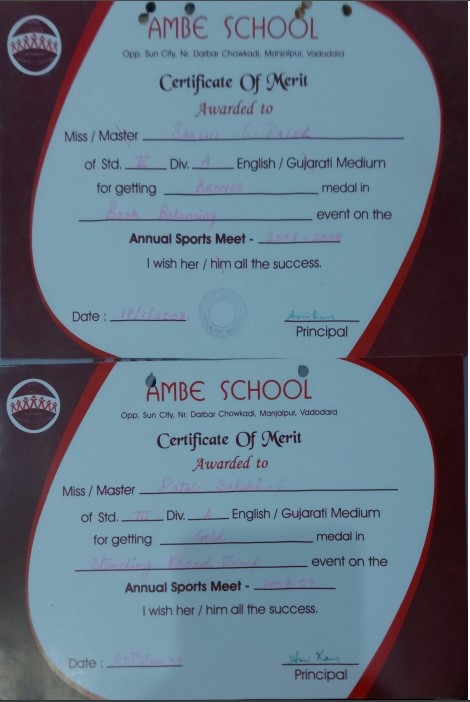 AMBE SCHOOL
Opp. Sun City, Nr. Darbar Chowkadi, Manjalpur, Vadodara
Certificate Of Merit
Awarded to
Miss / Master Sakshi . S. Patel
of Std. II Div. A English / Gujarati Medium
for getting Bronze medal in
Book Balancing event on the
Annual Sports Meet - 2007 - 2008
I wish her / him all the success.
Date :
Principal
AMBE SCHOOL
Opp. Sun City, Nr. Darbar Chowkadi, Manjalpur, Vadodara
Certificate Of Merit
Awarded to
Miss / Master Patel Sakshi . S
of Std. III Div. A English / Gujarati Medium
for getting Gold medal in
Standing Broad Jump event on the
Annual Sports Meet - 2008-09
I wish her / him all the success.
Date : 20th Jan
Principal